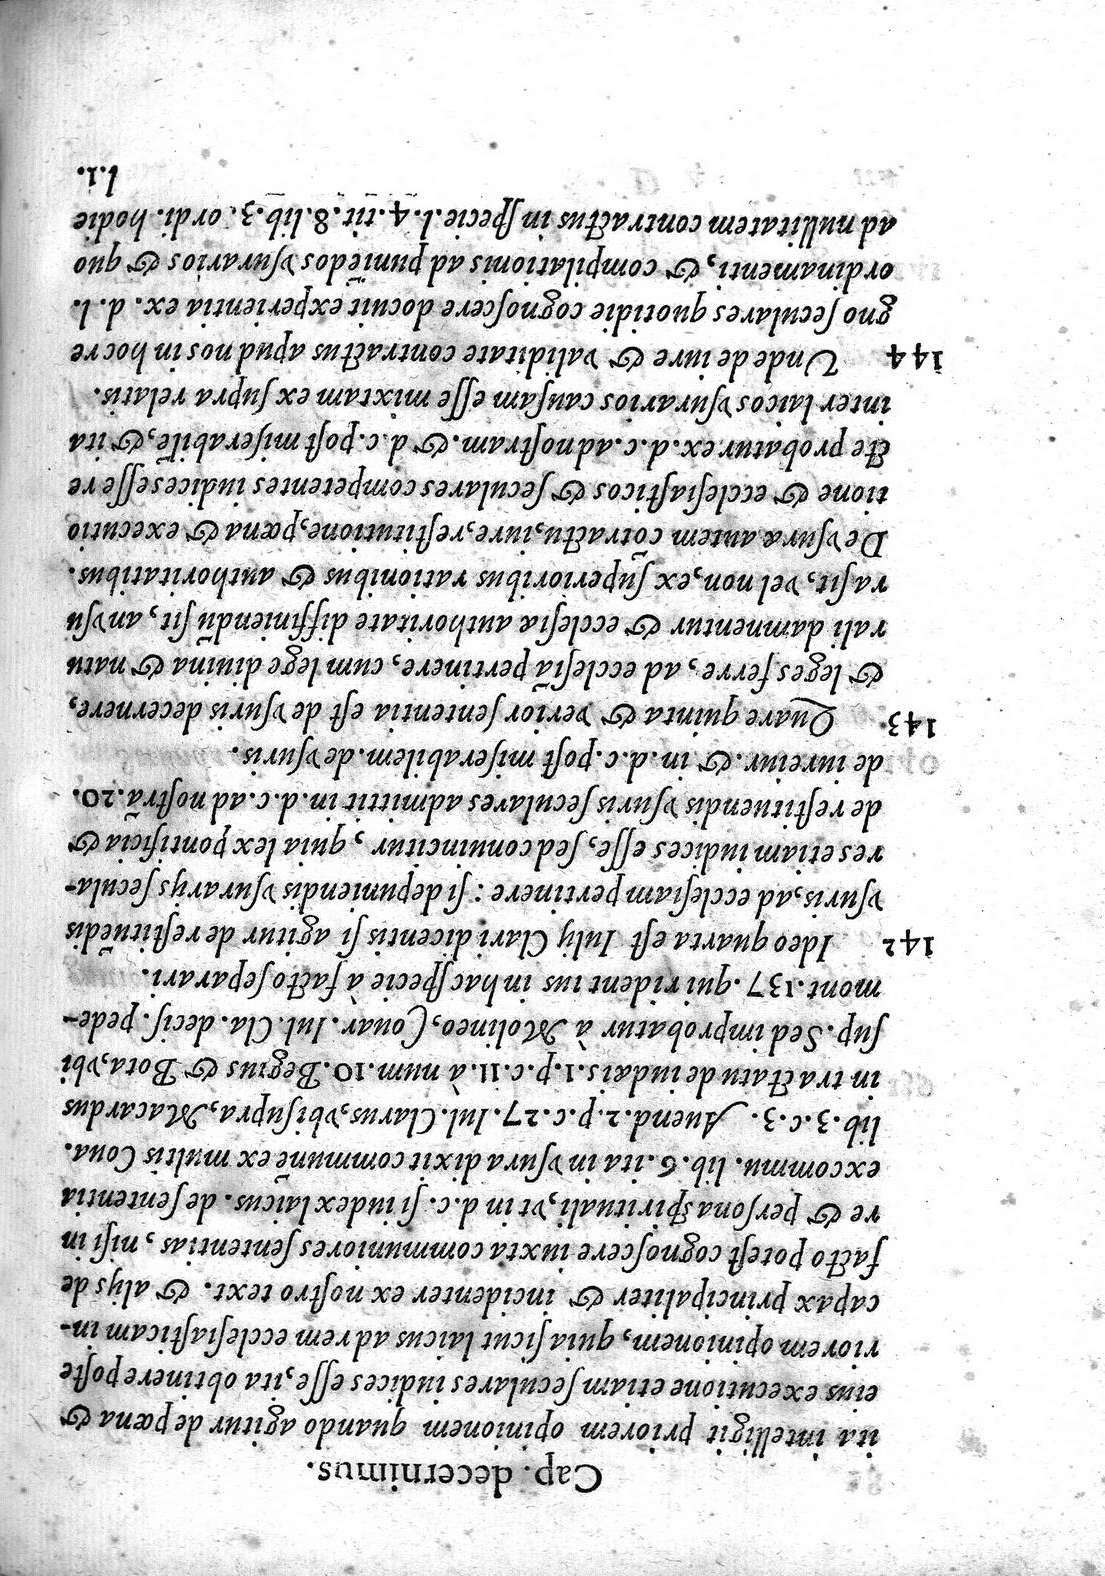 Cap. decernimus.
ita intelligit priorem opinionem quando agitur de pœna &
eius executione etiam ſeculares iudices eſſe, ita obtinere poſte
riorem opinionem, quia ſicut laicus ad rem eccleſiaſticam in-
capax principaliter & incidenter ex noſtro text. & alijs de
facto poteſt cognoſcere iuxta communiores ſententias, niſi in
re & perſona ſpirituali, vt in d. c. ſi iudex laicus. de ſententia
excommu. lib. 6. ita in vſura dixit commune ex multis Coua.
lib. 3. c. 3. Auend. 2. p. c. 27. Iul. Clarus, vbi ſupra, Macardus
in tractatu de iudæis. 1. p. c. 11. à num. 10. Begius & Bota, vbi
ſup. Sed improbatur à Molineo, Couar. Iul. Cla. deciſ. pede-
mont. 137. qui rident ius in hac ſpecie à facto ſeparari.
142 Ideo quarta eſt Iulij Clari dicentis ſi agitur de reſtituẽdis
vſuris, ad eccleſiam pertinere : ſi de puniendis vſurarijs ſecula-
res etiam iudices eſſe, ſed conuincitur, quia lex pontificia &
de reſtituendis vſuris ſeculares admittit in. d. c. ad noſtrã. 20.
de iureiur. & in. d. c. poſt miſerabilem. de vſuris.
143. Quare quinta & verior ſententia eſt de vſuris decernere,
& leges ferre, ad eccleſiã pertinere, cum lege diuina & natu
rali damnentur & eccleſiæ authoritate diffiniendũ ſit, an vſu
ra ſit, vel non, ex ſuperioribus rationibus & authoritatibus.
De vſuræ autem cõtractu, iure, reſtitutione, pœna & executio
tione & eccleſiaſticos & ſeculares competentes iudices eſſe re
cte probatur ex. d. c. ad noſtram. & d. c. poſt miſerabilẽ, & ita
inter laicos vſurarios cauſam eſſe mixtam ex ſupra relatis.
144 Unde de iure & validitate contractus apud nos in hoc re
gno ſeculares quotidie cognoſcere docuit experientia ex. d. l.
ordinamenti, & compilationis ad puniẽdos vſurarios & quo
ad nullitatem contractus in ſpecie. l. 4. tit. 8. lib. 3. ordi. hodie
l. 1.